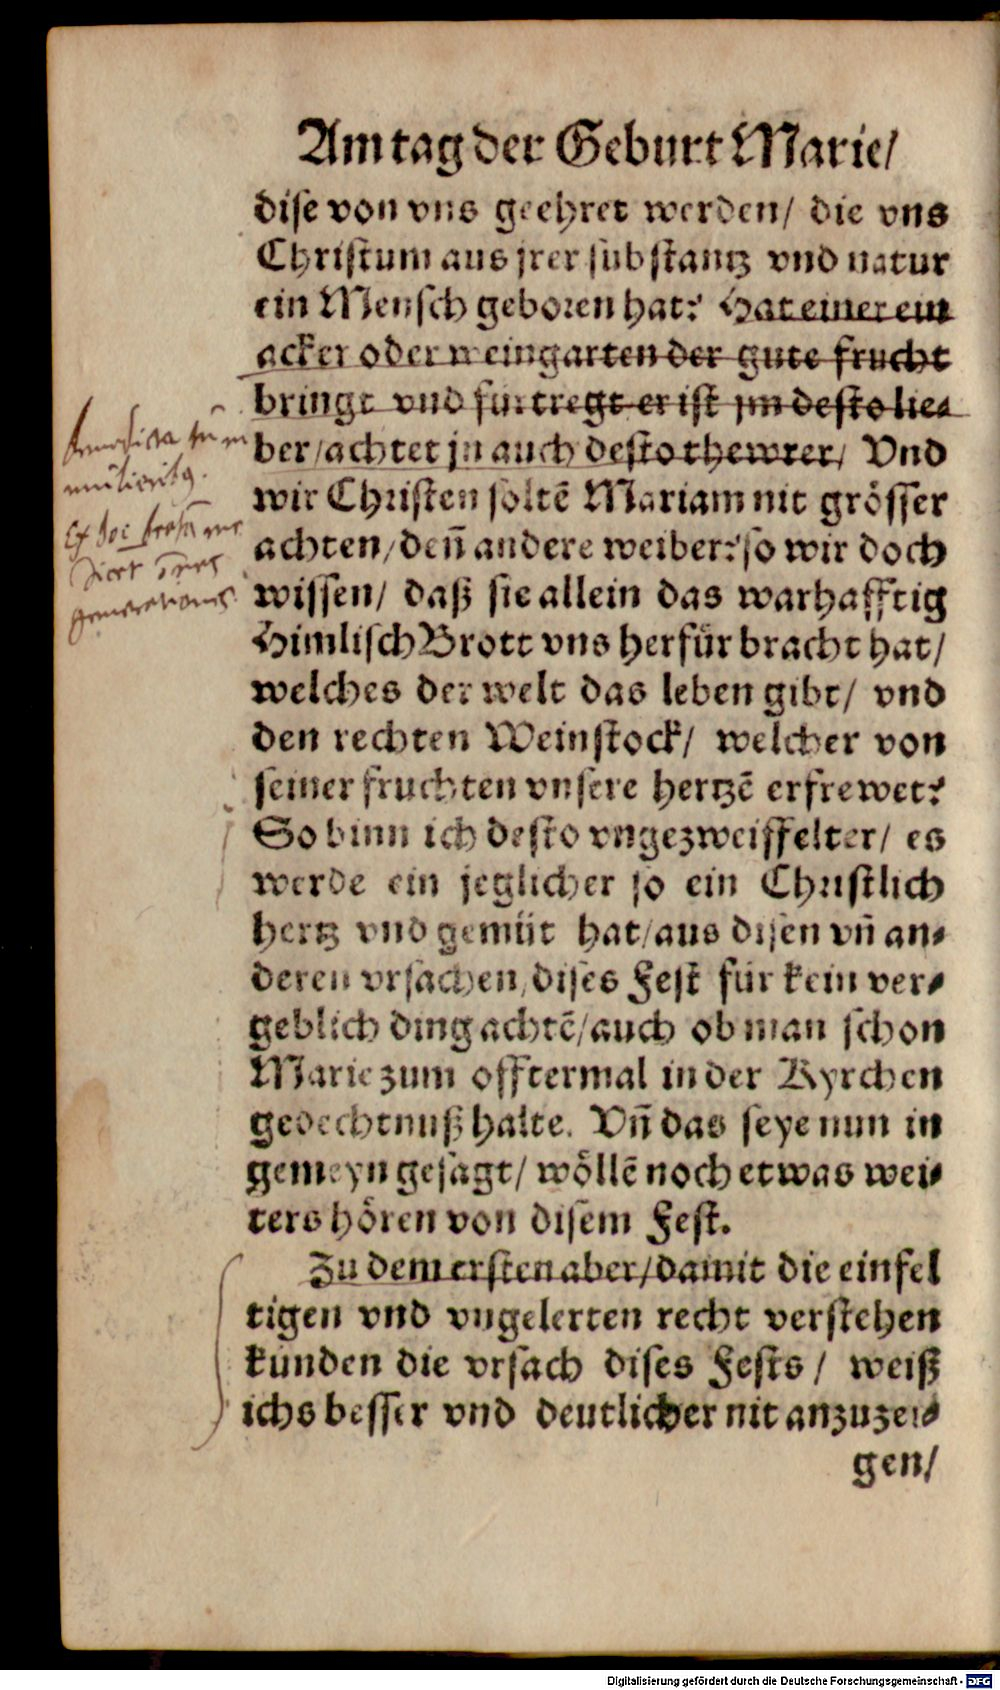 Am tag der Geburt Marie/
dise von vns geehret werden/ die vns
Christum aus jrer substantz vnd natur
ein Mensch geboren hat? Hat einer ein
acker oder weingarten der gute frucht
bringt vnd fürtregt er ist jm desto lie⸗
ber/achtet jn auch desto thewrer/ Vnd
wir Christen soltē Mariam nit grösser
achten/deñ andere weiber? so wir doch
wissen/ daß sie allein das warhafftig
Himlisch Brott vns herfür bracht hat/
welches der welt das leben gibt/ vnd
den rechten Weinstock/ welcher von
seiner fruchten vnsere hertzē erfrewet?
So binn ich desto vngezweiffelter/ es
werde ein jeglicher so ein Christlich
hertz vnd gemüt hat/aus disen vñ an⸗
deren vrsachen/dises Fest für kein ver⸗
geblich ding achtē/auch ob man schon
Marie zum offtermal in der Kyrchen
gedechtnuß halte. Vñ das seye nun in
gemeyn gesagt/ wöllē noch etwas wei⸗
ters hören von disem Fest.
Zu dem ersten aber/damit die einfel
tigen vnd vngelerten recht verstehen
kunden die vrsach dises Fests/ weiß
ichs besser vnd deutlicher nit anzuzei⸗
gen/
Benedicta tu in
mulierib9.
Ex hoc beatā me
dicet oēs
generationes.
Digitalisierung gefördert durch die Deutsche Forschungsgemeinschaft - DFG